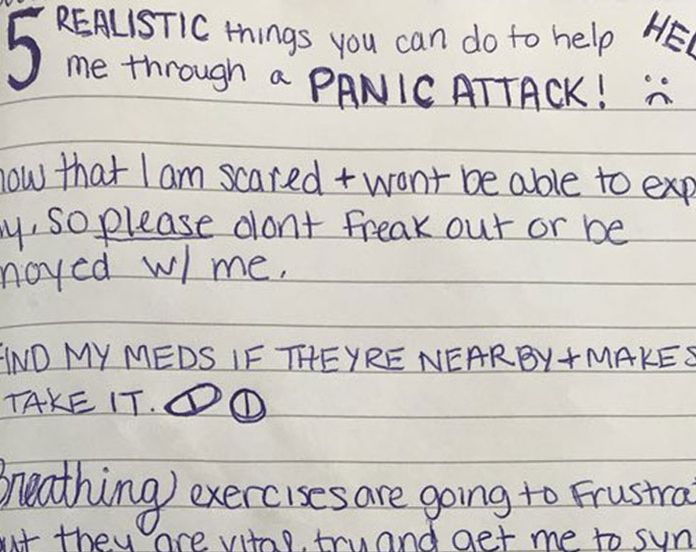 5 REALISTIC things you can do to help HEL
me through a PANIC ATTACK!
now that I am scared + wont be able to exp
y, so please dont freak out or be
noyed w/ me.
FIND MY MEDS IF THEYRE NEARBY + MAKE S
TAKE IT.
Breathing exercises are going to frustrat
ut they are vital, try and get me to syn